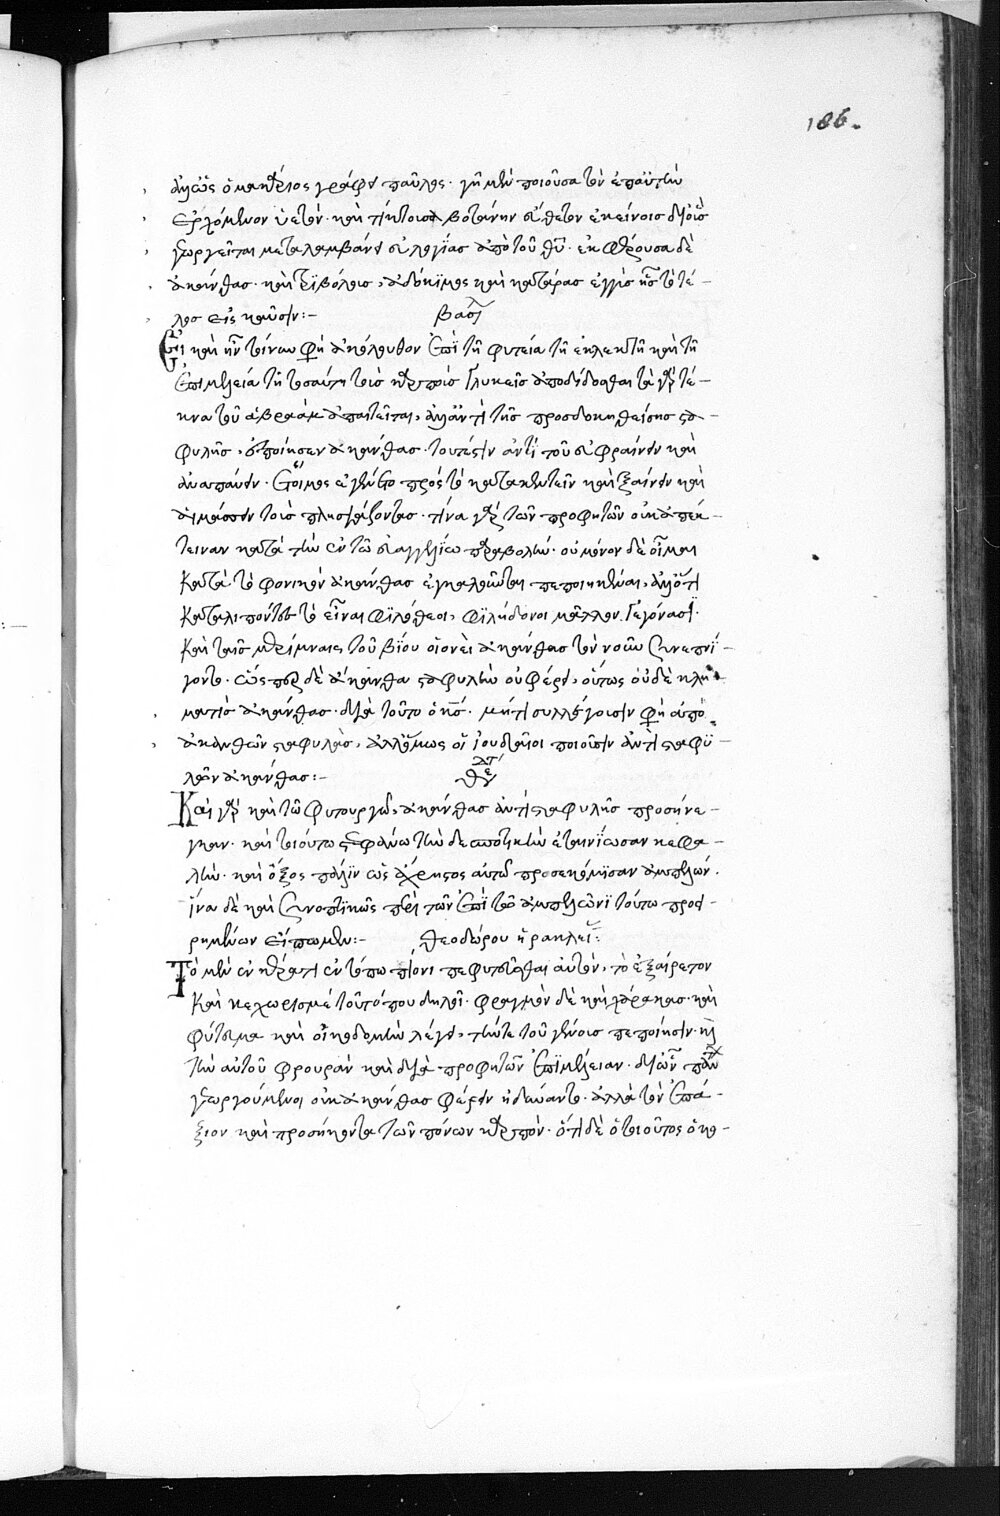 186.
ἀλλ' ὡς ὁ μακάριος γράφει παῦλος· γῆ μὲν πιοῦσα τὸν ἐπ' αὐτὴν
ἐρχόμενον ὑετὸν· καὶ τίκτουσα βοτάνην εὔθετον ἐκείνοις δι' οὓς
γεωργεῖται μεταλαμβάνει εὐλογίας ἀπὸ τοῦ θυ· ἐκφέρουσα δὲ
ἀκάνθας· καὶ τριβόλους, ἀδόκιμος καὶ κατάρας ἐγγὺς ἧς τὸ τέ-
λος εἰς καῦσιν:- βασιλ
καὶ ἦν φη ἀκόλουθον ἐπὶ τῆ φυτεία τῆ ἐκλεκτῆ καὶ τῆ
ἐπιμελεία τῆ τοσαύτη τοὺς καρποὺς γλυκεῖς ἀποδίδοσθαι τὰ γὰρ τέ-
κνα τοῦ ἀβραὰμ ἀπαιτεῖται, ἀλλ' ἀντὶ τῆς προσδοκηθείσης στα-
φυλῆς, ἐποίησεν ἀκάνθας· τουτέστιν ἀντὶ τοῦ εὐφραίνειν καὶ
ἀναπαύειν· ἕτοιμος ἐγένετο πρὸς τὸ κατακεντεῖν καὶ ξαίνειν καὶ
αἱμάσσειν τοὺς πλησιάζοντας· τίνα γὰρ τῶν προφητῶν οὐκ ἀπέκ-
τειναν κατὰ τὴν ἐν τῶ εὐαγγελίω παραβολὴν· οὐ μόνον δὲ οἶμαι
κατὰ τὸ φονικὸν ἀκάνθας ἐγκαλοῦνται πεποιηκέναι, ἀλλ' ὅτι
καταλιπόντες τὸ εἶναι φιλόθεοι, φιλήδονοι μᾶλλον γεγόνασι·
καὶ ταῖς μερίμναις τοῦ βίου οἱονεὶ ἀκάνθας τὸν νοῦν συνεπνί-
γοντο· ὥσπερ δὲ ἄκανθα σταφυλὴν οὐ φέρει, οὕτως οὐδὲ κλη-
ματὶς ἀκάνθας· διὰ τοῦτο ὁ κς· μήτι συλλέγουσιν φη ἀπὸ
ἀκανθῶν σταφυλὰς, ἀλλ' ὅμως οἱ ἰουδαῖοι ποιοῦσιν ἀντὶ σταφυ-
λῶν ἀκάνθας:-
Καὶ γὰρ καὶ τῶ φυτουργῶ, ἀκάνθας ἀντὶ σταφυλῆς προσήνε-
γκαν· καὶ τοιούτω στεφάνω τὴν δεσποτικὴν ἐταινίωσαν κεφα-
λὴν· καὶ ὄξος πάλιν ὡς ἄχρηστος αὐτῶ προσεκόμισαν ἀμπελών·
ἵνα δὲ καὶ συνοπτικῶς περὶ τῶν ἐπὶ τῶ ἀμπελῶνι τούτω προει-
ρημένων εἴπωμεν:- θεοδώρου ἡρακλεί:
Τὸ μὲν ἐν κέρατι ἐν τόπω πίονι πεφυτεῦσθαι αὐτὸν, τὸ ἐξαίρετον
καὶ κεχωρισμέ τοῦ τόπου δηλοῖ· φραγμὸν δὲ καὶ χάρακας· καὶ
φύτευμα καὶ οἰκοδομὴν λέγει, τήν τε τοῦ γένους πεποίησιν· κ
τὴν αὐτοῦ φρουρὰν καὶ διὰ προφητῶν ἐπιμέλειαν· δι' ὧν
γεωργούμενοι οὐκ ἀκάνθας φέρειν ἠδύναντο· ἀλλὰ τὸν ἐπά-
ξιον καὶ προσήκοντα τῶν πόνων καρπὸν· ὅτι δὲ ὁ τοιοῦτος ὁ κα-